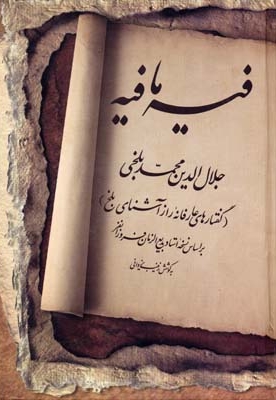 فیه ما فیه
جلال الدین محمد بلخی
(گفتارهای عارفانه راز آشنای بلخ)
بر اساس نسخه استاد بدیع الزمان فروزانفر
به کوشش زینب یزدانی